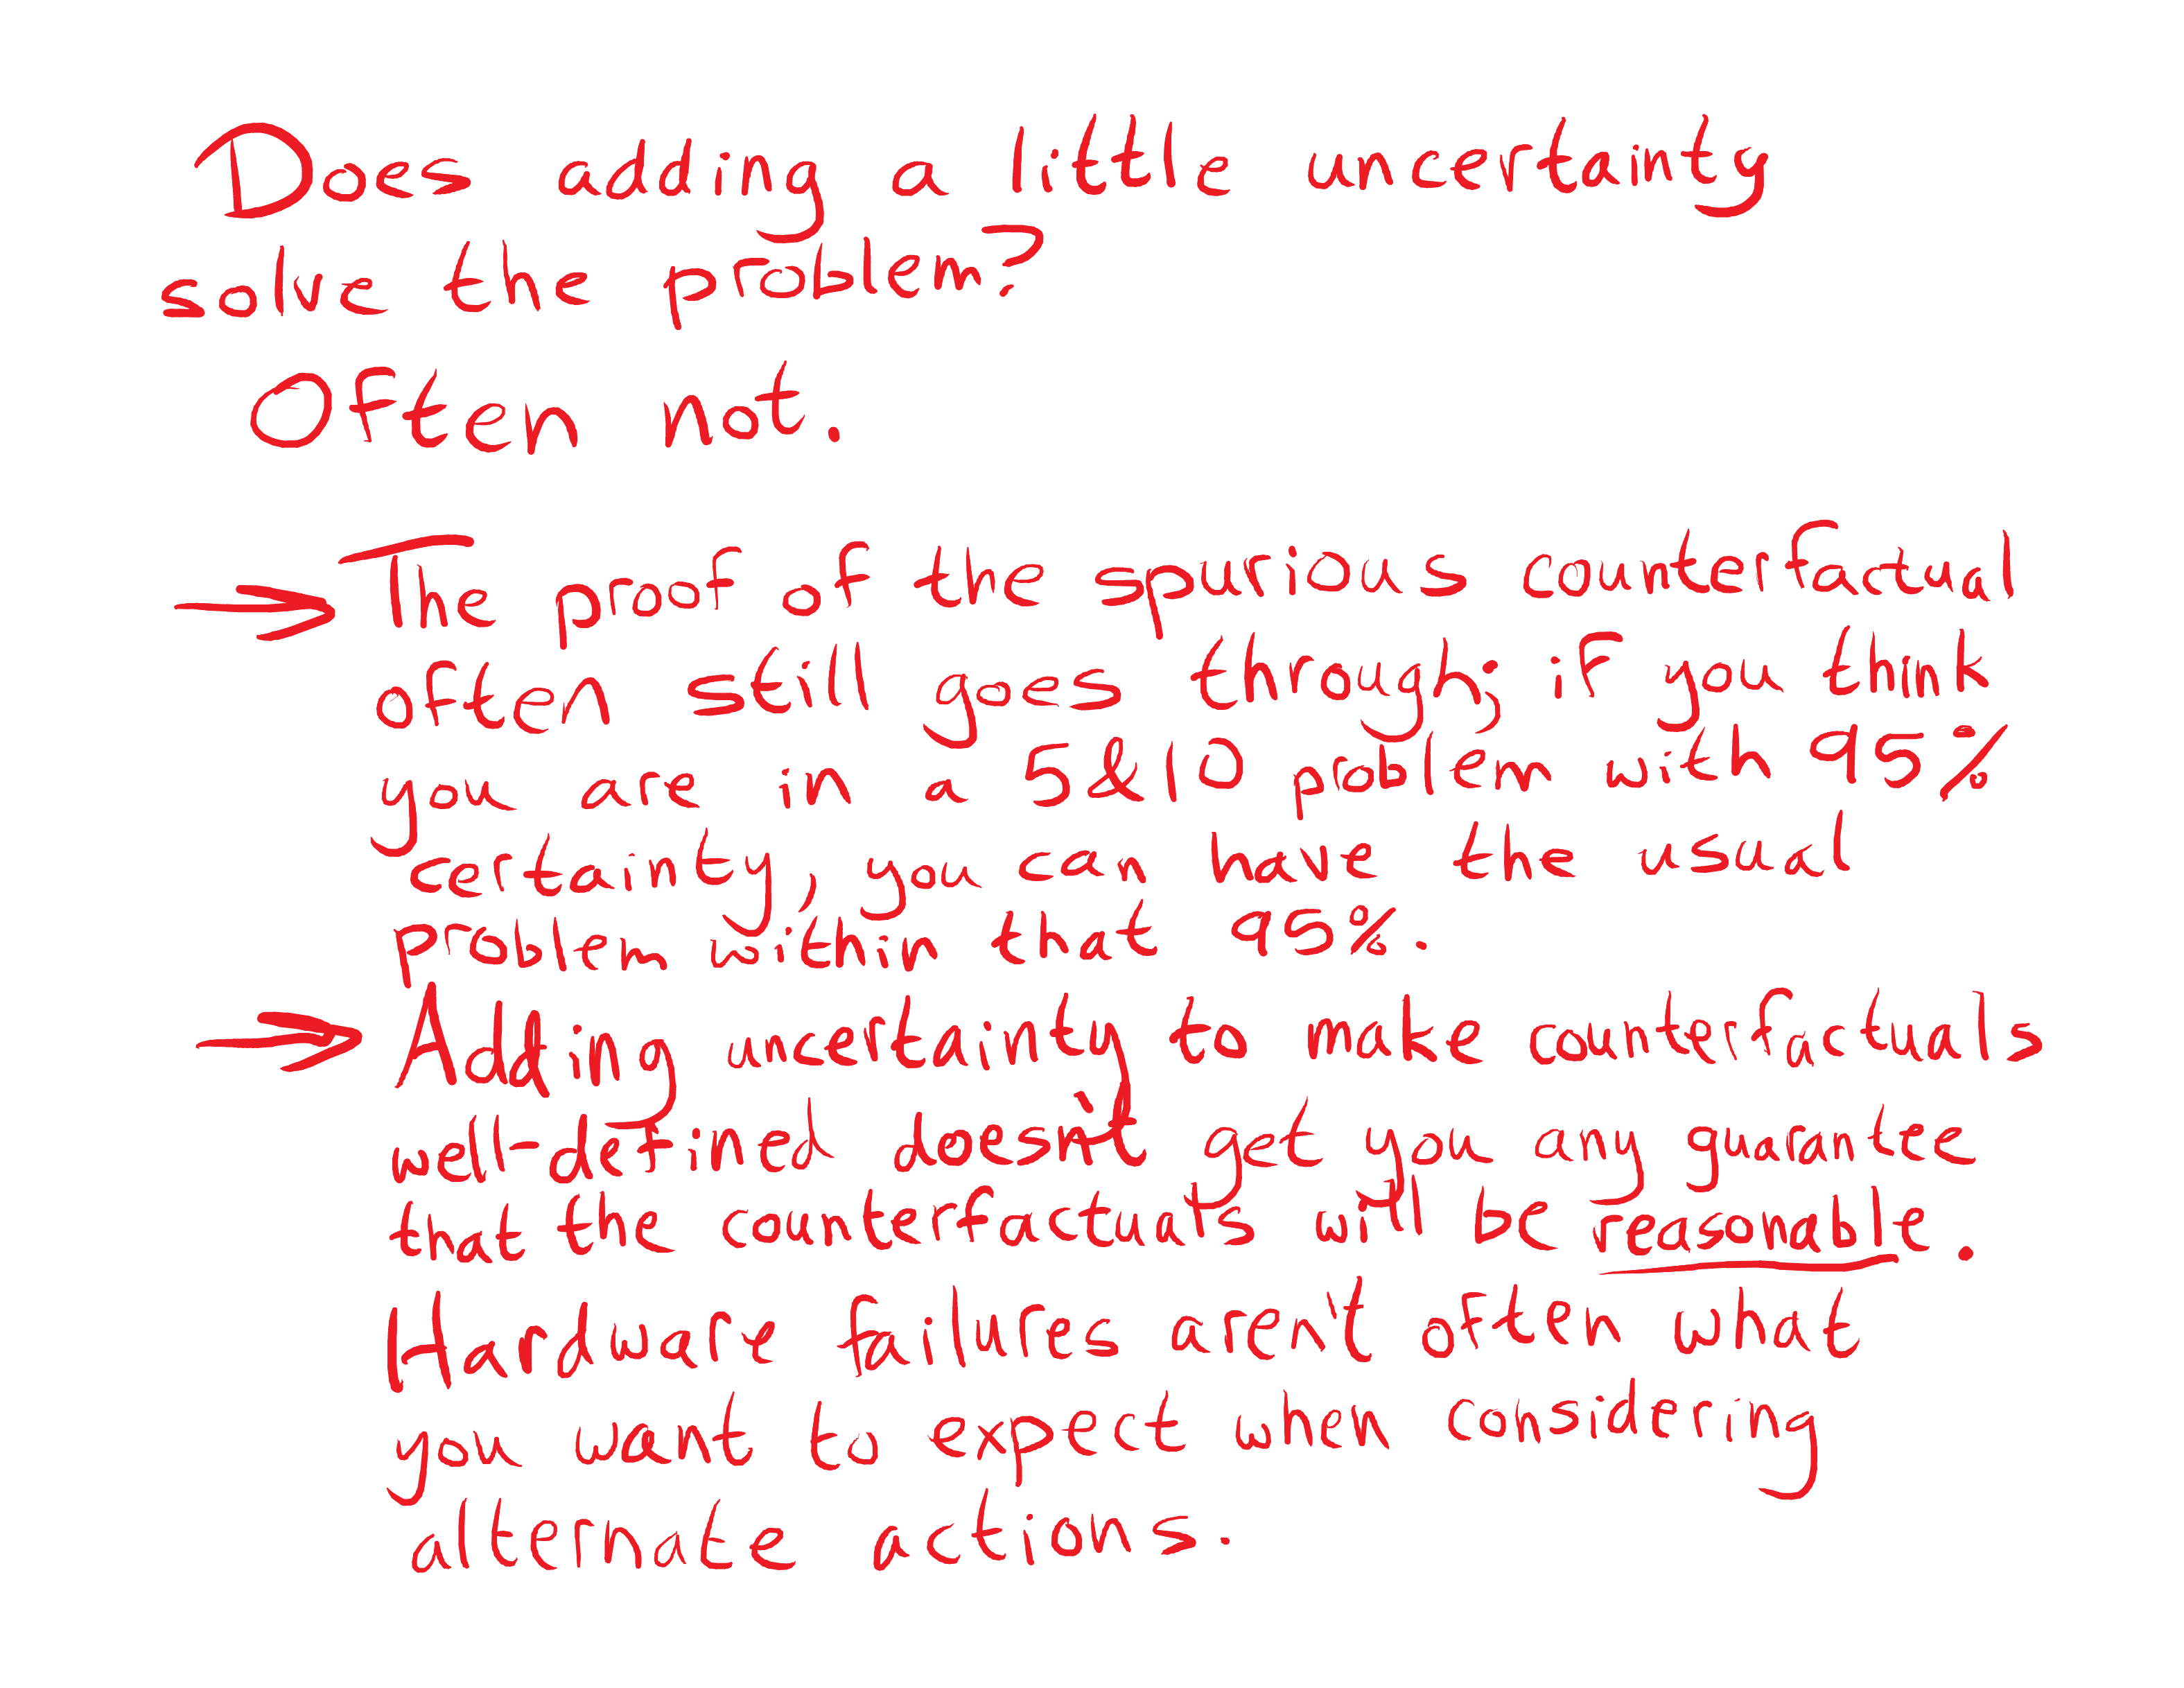 Does adding a little uncertainty
solve the problem?
Often not.
→ The proof of the spurious counterfactual
often still goes through; if you think
you are in a 5&10 problem with 95%
certainty, you can have the usual
problem within that 95%.
→ Adding uncertainty to make counterfactuals
well-defined doesn't get you any guarantee
that the counterfactuals will be reasonable.
Hardware failures aren't often what
you want to expect when considering
alternate actions.